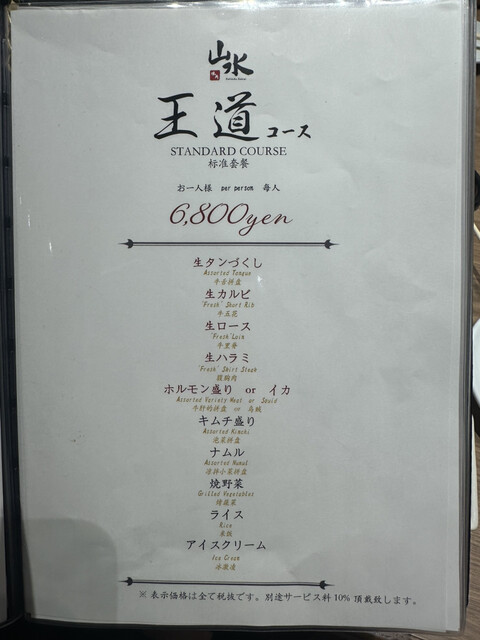 山水
王道コース
STANDARD COURSE
标准套餐
お一人様 per person 每人
6,800yen
生タンづくし
Assorted Tongue
牛舌拼盘
生カルビ
"Fresh" Short Rib
牛五花
生ロース
"Fresh"Loin
牛里脊
生ハラミ
"Fresh" Skirt Steak
膈胸肉
ホルモン盛り or イカ
Assorted Variety Meat or Squid
牛杂的拼盘 or 乌贼
キムチ盛り
Assorted Kimchi
泡菜拼盘
ナムル
Assorted Namul
凉拌小菜拼盘
焼野菜
Grilled Vegetables
烤蔬菜
ライス
Rice
米饭
アイスクリーム
Ice Cream
冰激凌
※ 表示価格は全て税抜です。別途サービス料10% 頂戴致します。